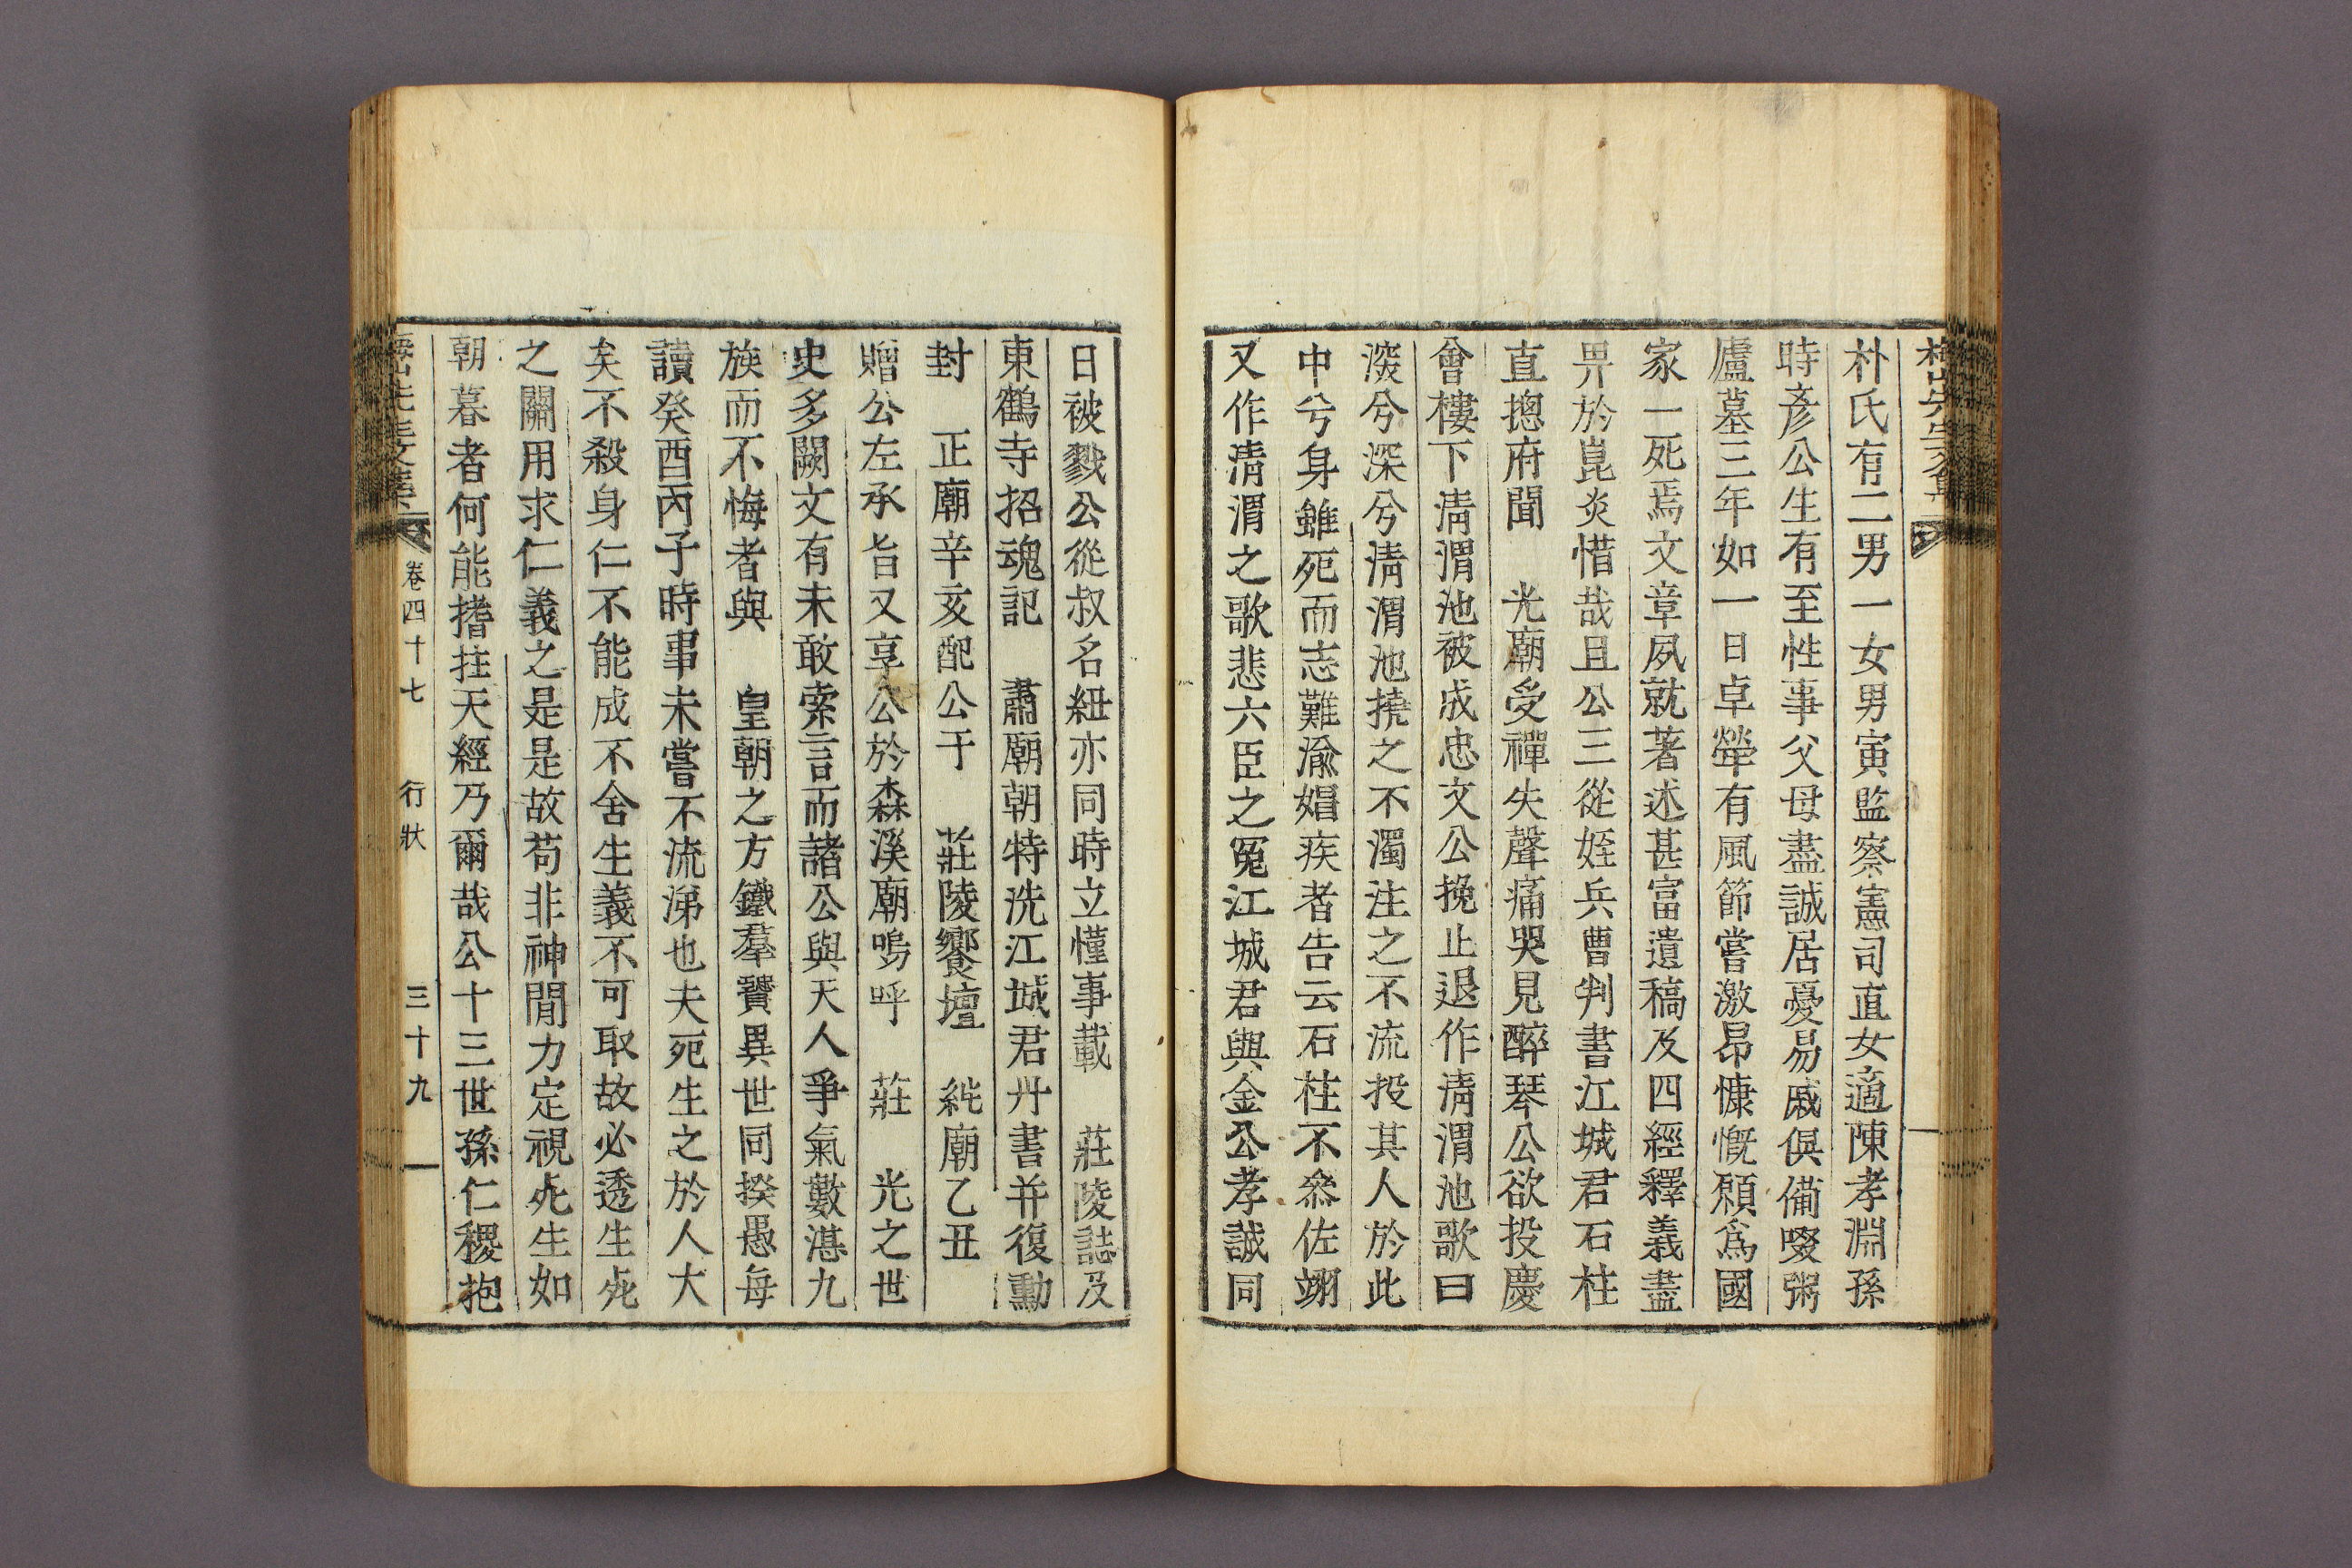 梅山先生文集
朴氏有二男一女男寅監察憲司直女適陳孝淵孫
時彥公生有至性事父母盡誠居憂易戚俱備啜粥
廬墓三年如一日卓犖有風節嘗激昂慷慨願爲國
家一死焉文章夙就著述甚富遺稿及四經釋義盡
畀於崑炎惜哉且公三從姪兵曹判書江城君石柱
直摠府聞　光廟受禪失聲痛哭見醉琴公欲投慶
會樓下淸渭池被成忠文公挽止退作淸渭池歌曰
深兮深兮淸渭池撓之不濁注之不流投其人於此
中兮身雖死而志難渝娼疾者告云石柱不叅佐翊
又作淸渭之歌悲六臣之冤江城君與金公孝誠同
日被戮公從叔名紐亦同時立慬事載　莊陵誌及
東鶴寺招魂記　肅廟朝特洗江城君丹書并復勳
封　正廟辛亥配公于　莊陵饗壇　純廟乙丑
贈公左承旨又享公於森溪廟嗚呼　莊　光之世
史多闕文有未敢索言而諸公與天人爭氣數湛九
族而不悔者與　皇朝之方鐵羣賢異世同揆愚每
讀癸酉丙子時事未嘗不流涕也夫死生之於人大
矣不殺身仁不能成不舍生義不可取故必透生死
之關用求仁義之是是故苟非神閒力定視死生如
朝暮者何能撐拄天經乃爾哉公十三世孫仁稷抱
梅山先生文集　卷四十七　行狀　三十九